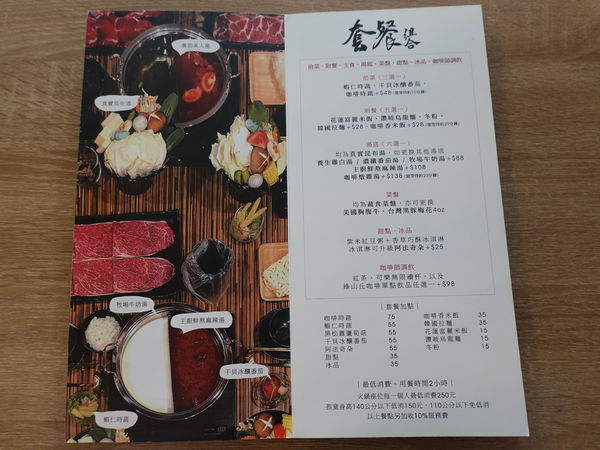 番茄美人湯
真實昆布湯
牧場牛奶湯
主廚鮮熬麻辣湯
干貝冰釀番茄
蝦仁時蔬
套餐
前菜、附餐、主食、湯底、菜盤、甜點、冰品、咖啡師調飲
前菜（三選一）
蝦仁時蔬、干貝冰釀番茄、
咖啡時蔬+$48
附餐（五選一）
花蓮富麗米飯、讚岐烏龍麵、冬粉、
韓國拉麵+$28、咖啡香米飯+$28
湯底（六選一）
均為真實昆布湯，如更換其他湯底
養生雞白湯 / 濃纖番茄湯 / 牧場牛奶湯+$88
主廚鮮熬麻辣湯+$108
咖啡燉雞湯+$138
菜盤
均為蔬食菜盤，亦可更換
美國胸腹牛、台灣黑豚梅花4oz
甜點、冰品
紫米紅豆粥+香草巧酥冰淇淋
冰淇淋可升級阿法奇朵+$25
咖啡師調飲
紅茶、可樂無限續杯，以及
綠山丘咖啡單點飲品任選一+$98
｜套餐加點｜
咖啡時蔬 75 咖啡香米飯 35
蝦仁時蔬 55 韓國拉麵 35
黑松露蘆筍菇 55 花蓮富麗米飯 15
干貝冰釀番茄 55 讚岐烏龍麵 15
阿法奇朵 55 冬粉 15
甜點 35
冰品 35
｜最低消費、用餐時間2小時｜
火鍋座位每一個人最低消費250元
孩童身高140公分以下低消150元，110公分以下免低消
以上餐點另加收10%服務費